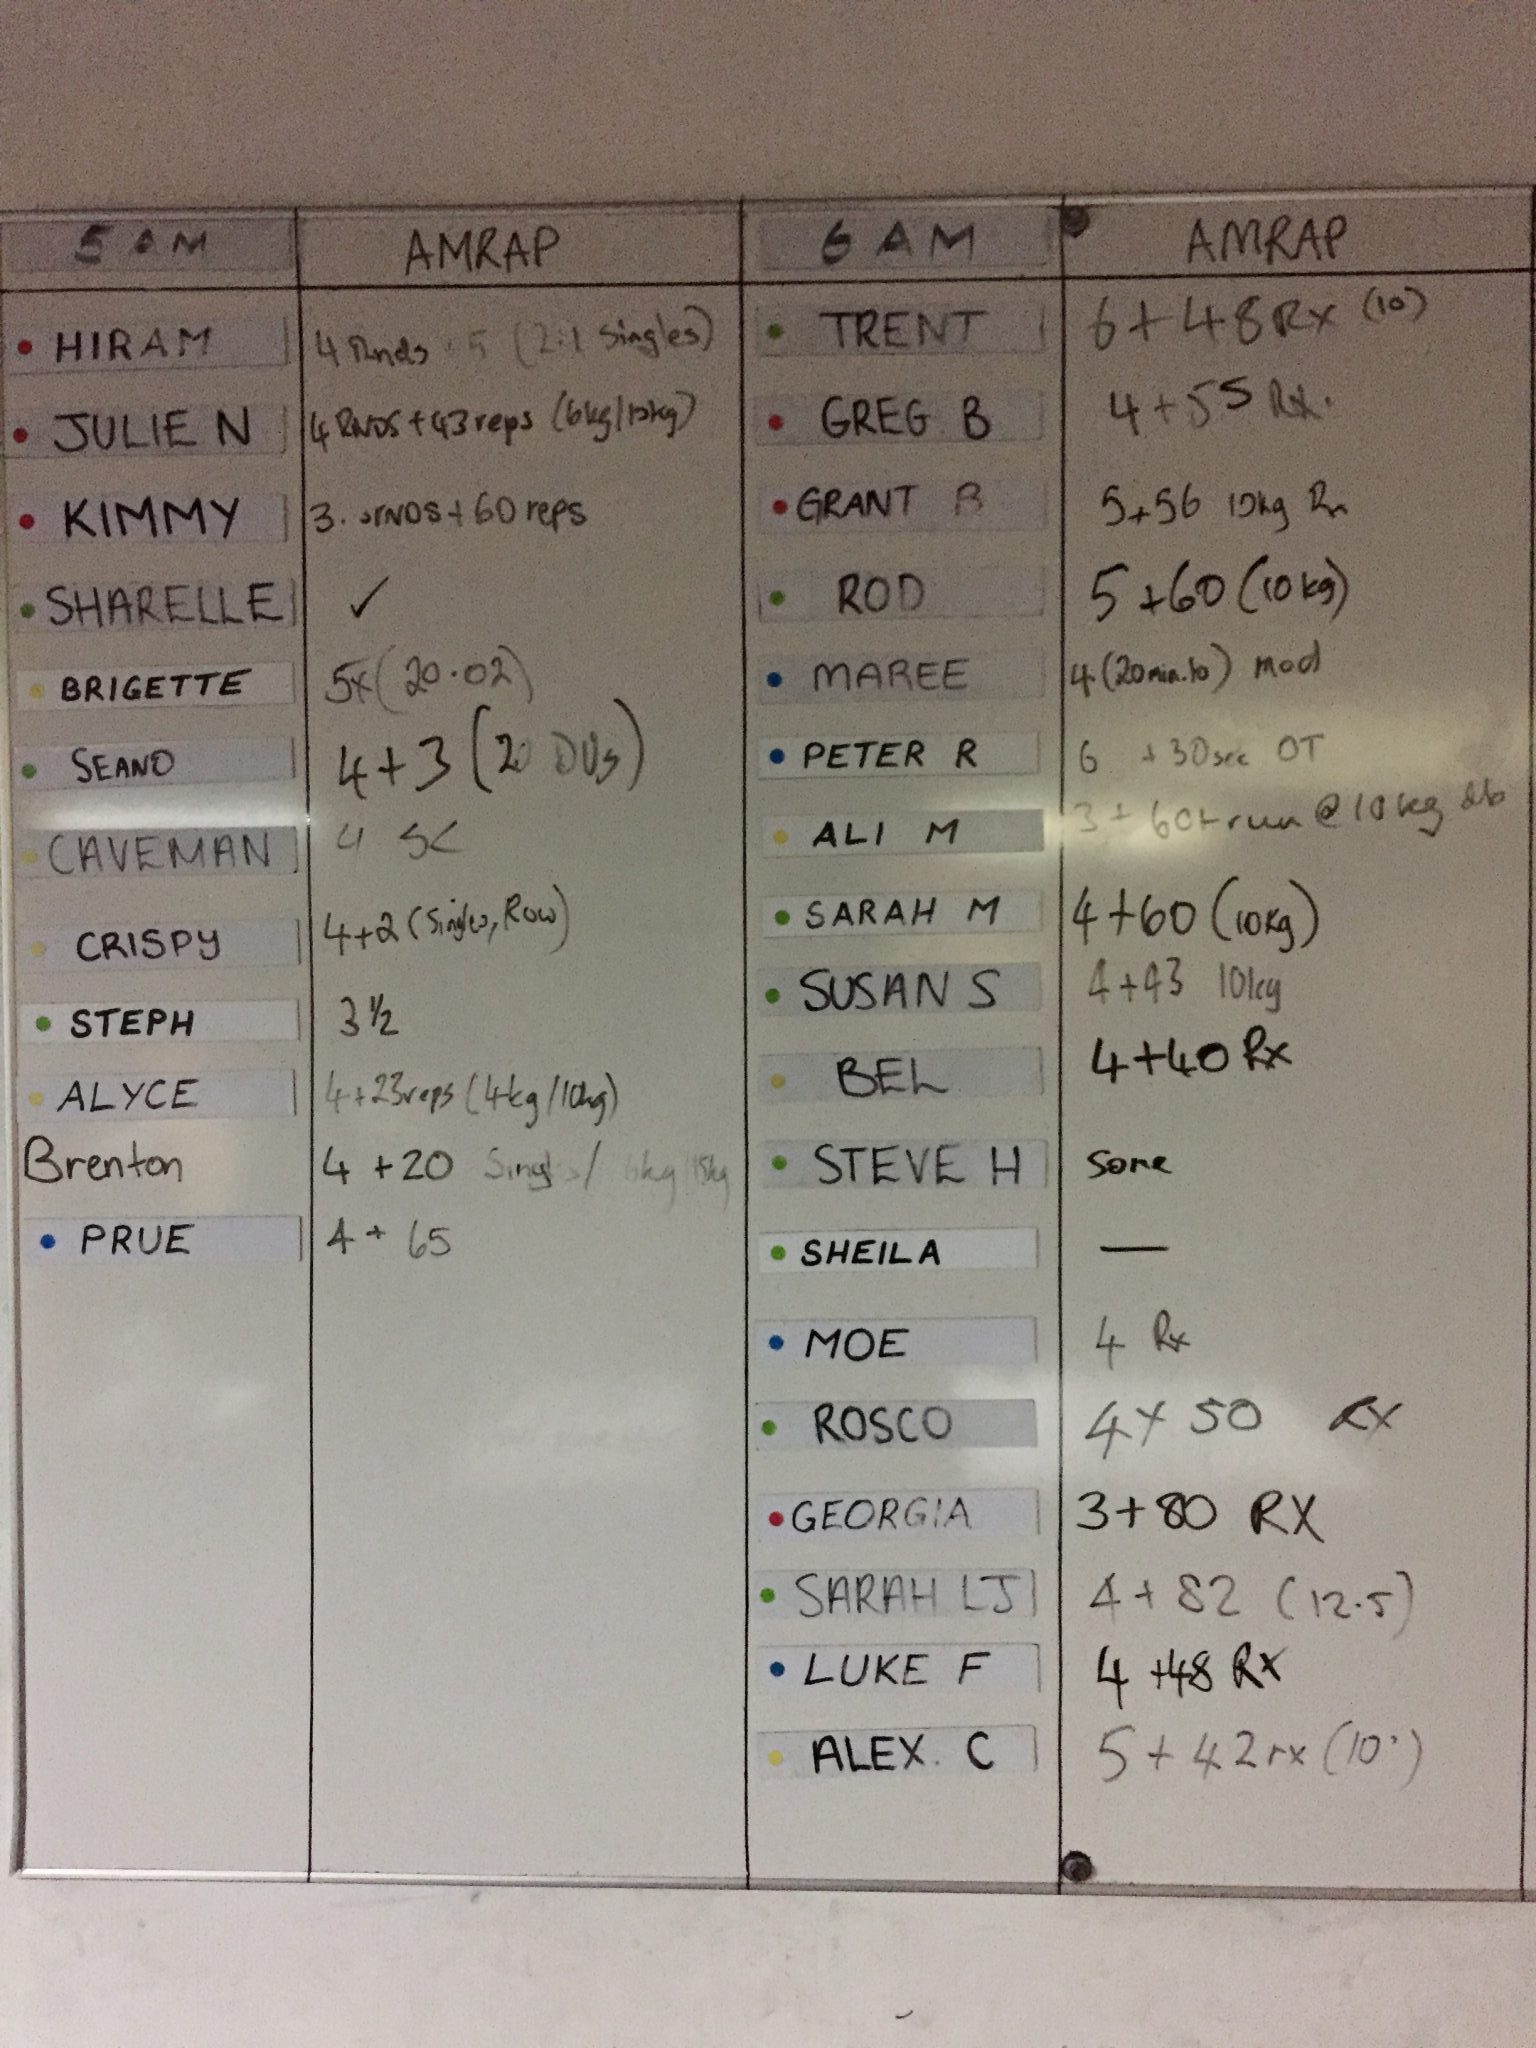 5 AM AMRAP 6 AM AMRAP
HIRAM 4 Rnds 5 (2:1 Singles)
JULIE N 4 RNDS + 43 reps (6kg/10kg)
KIMMY 3. RNDS + 60 reps
SHARELLE ✓
BRIGETTE 5x (20.02)
SEANO 4 + 3 (DUs)
CAVEMAN 4 SC
CRISPY 4+2 (Singles, Row)
STEPH 3 ½
ALYCE 4+23 reps (4kg/10kg)
Brenton 4 +20 Singles/ 6kg/15kg
PRUE 4 + 65
TRENT 6 + 48 Rx (10)
GREG B 4 + 55 Rx.
GRANT B 5+56 10kg Rx
ROD 5 +60 (10kg)
MAREE 4 (20min.10) mod
PETER R 6 +30sec OT
ALI M 3 + 60+run @ 10kg db
SARAH M 4 +60 (10kg)
SUSAN S 4+43 10kg
BEL 4+40 Rx
STEVE H some
SHEILA —
MOE 4 Rx
ROSCO 4+ 50 RX
GEORGIA 3+80 RX
SARAH LJ 4 + 82 (12.5)
LUKE F 4 +48 RX
ALEX. C 5 + 42 rx (10)